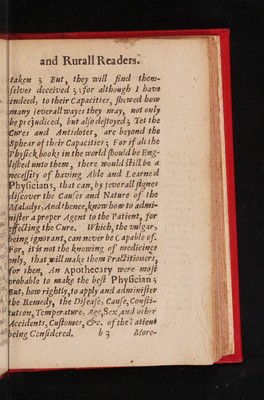 and Rurall Readers.
taken ; But, they will find them-
selves deceived ; for although I have
indeed, to their Capacities, shewed how
many severall wayes they may, not only
be prejudiced, but also destoyed ; Yet the
Cures and Antidotes, are beyond the
Sphear of their Capacities ; For if als the
Physick books in the world should be Eng-
lished unto them, there would still be a
necessity of having Able and Learned
Physicians, that can, by severall signes
discover the Causes and Nature of the
Malady: And thence, know how to admi-
nister a proper Agent to the Patient, for
effecting the Cure. Which, the vulgar,
being ignorant, can never be Capable of.
For, it is not the knowing of medicines
only, that will make them Practitioners,
for then, An Apothecary were most
probable to make the best Physician ;
But, how rightly, to apply and administer
the Remedy, the Disease, Cause, Consti-
tution, Temperature, Age, Sex, and other
Accidents, Customes, &c. of the Patient
being Considered. b 3 More-